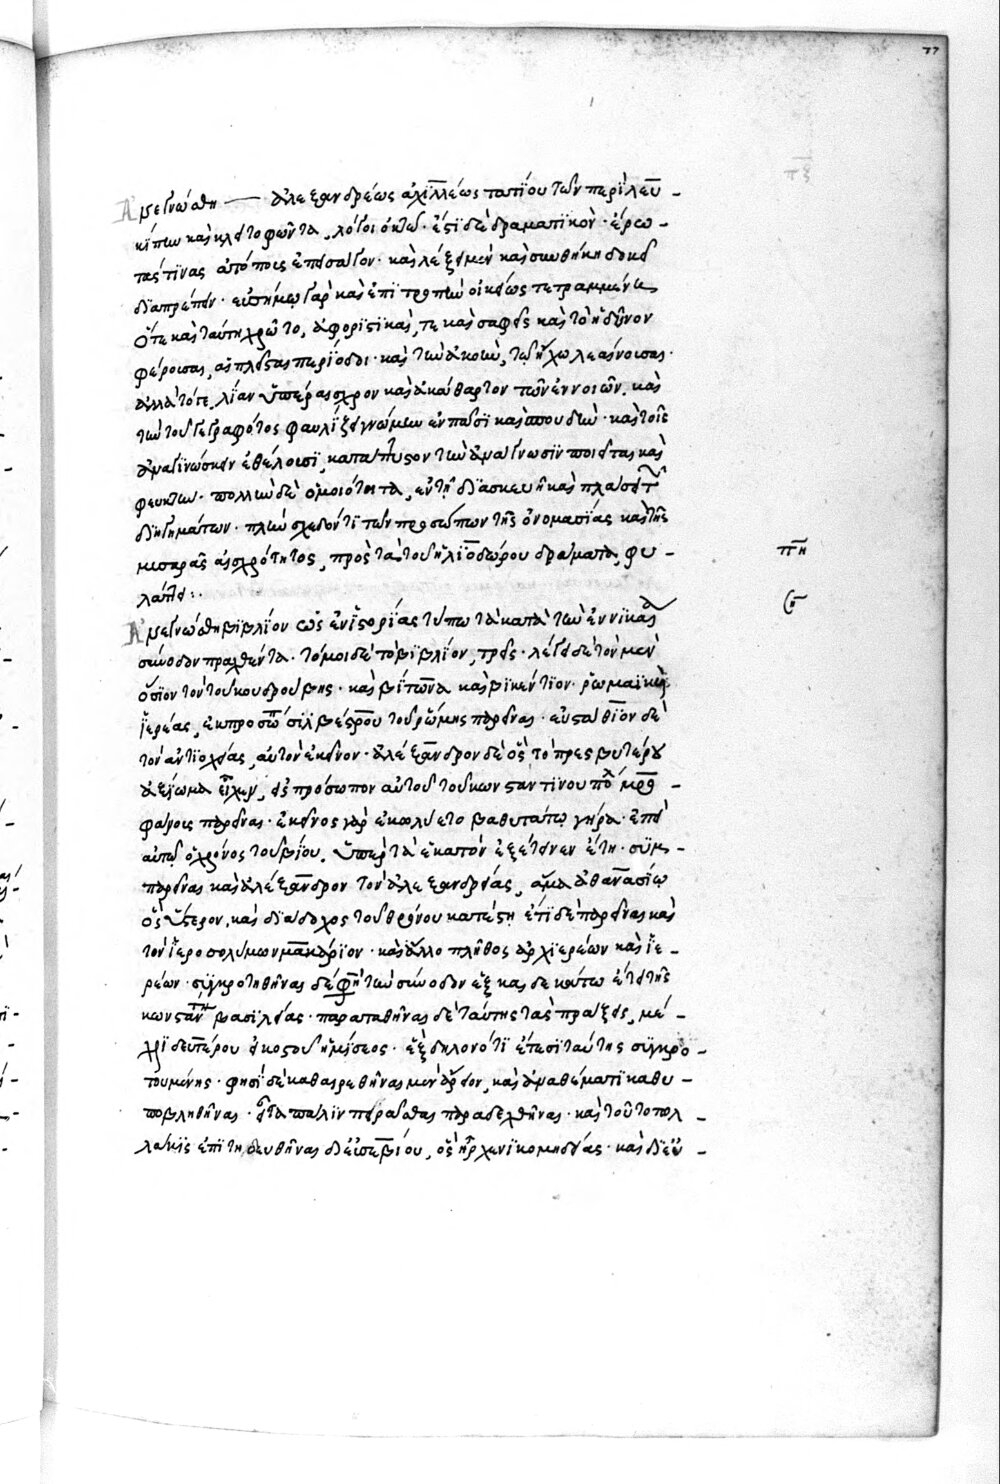 77
πζ
Ἀνεγνώσθη — ἀλεξανδρέως ἀχιλλέως τατίου τῶν περὶ λευ -
κίππην καὶ κλειτοφῶντα, λόγοι ὀκτώ· ἔστι δὲ δραματικὸν· ἔρω -
τάς τινας ἀτόπους ἐπεισάγον· καὶ λέξει μὲν καὶ συνθήκῃ δοκεῖ
διαπρέπειν· εὐσήμῳ γὰρ καὶ ἐπὶ τροπὴν οἰκείως τετραμμένη
ὅτε καὶ ταύτῃ χρῶτο, ἀφοριστικαὶ, τε καὶ σαφεῖς καὶ τὸ ἡδύνον
φέρουσαι, αἱ πλεῖσται περίοδοι· καὶ τὴν ἀκοὴν, τῷ ἤχῳ λεαίνουσαι·
ἀλλὰ τό γε, λίαν ὑπέραισχρον καὶ ἀκάθαρτον τῶν ἐννοιῶν, καὶ
τὴν τοῦ γεγραφότος φαυλίζει γνώμην ἐν πᾶσι καὶ σπουδὴν· καὶ τοῖς
ἀναγινώσκειν ἐθέλουσι, κατάπτυστον τὴν ἀνάγνωσιν ποιεῖται καὶ
φευκτήν· πολλὴν δὲ ὁμοιότητα, ἐν τῇ διασκευῇ καὶ πλάσει τῶν
διηγημάτων· πλὴν σχεδόν τι τῶν προσώπων τῆς ὀνομασίας καὶ τῆς
μυσαρᾶς αἰσχρότητος, πρὸς τὰ τοῦ ἡλιοδώρου δράματα, φυ -
λάττει:.
πη
Ἀνεγνώσθη βιβλίον ὡς ἐν ἱστορίας τύπῳ τὰ κατὰ τὴν ἐν νικαίᾳ
σύνοδον πραχθέντα· τόμοι δὲ τὸ βιβλίον, τρεῖς· λέγει δὲ τὸν μὲν
ὅσιον τὸν τοῦ κουδρούβης· καὶ βίτωνα καὶ βικέντιον· ῥωμαϊκοὺς
ἱερέας, ἐκ προσώπου σιλβέστρου τοῦ ῥώμης παρεῖναι· εὐστάθιον δὲ
τὸν ἀντιοχείας, αὐτὸν ἐκεῖνον· ἀλέξανδρον δὲ ὃς τὸ πρεσβυτέρου
ἀξίωμα εἶχεν, εἰς πρόσωπον αὐτοῦ τοῦ κωνσταντίνου πόλ μητρο -
φάνους παρεῖναι· ἐκεῖνος γὰρ ἐκωλύετο βαθυτάτῳ γήρᾳ· ἐπεὶ
αὐτῷ ὁ χρόνος τοῦ βίου, ὑπὲρ τὰ ἑκατὸν ἐξέτεινεν ἔτη· συμ -
παρεῖναι καὶ ἀλέξανδρον τὸν ἀλεξανδρείας, ἅμα ἀθανασίῳ
ὃς ὕστερον, καὶ διάδοχος τοῦ θρόνου κατέστη ἔτι δὲ παρεῖναι καὶ
τὸν ἱεροσολύμων μακάριον· καὶ ἄλλο πλῆθος ἀρχιερέων καὶ ἱε -
ρέων· συγκροτηθῆναι δέ φησι τὴν σύνοδον ἑξκαιδεκάτῳ ἔτει τῆς
κωνσταντί βασιλείας· παραταθῆναι δὲ ταύτης τὰς πράξεις, μέ -
χρι δευτέρου εἰκοστοῦ ἡμίσεος· ἓξ δηλονότι ἔτεσι ταύτης συγκρο -
τουμένης· φησὶ δὲ καθαιρεθῆναι μὲν ἄρειον, καὶ ἀναθέματι καθυ -
ποβληθῆναι· εἶτα πάλιν πειρᾶσθαι παραδεχθῆναι· καὶ τοῦτο πολ -
λάκις ἐπιτηδευθῆναι δι' εὐσεβίου, ὃς ἦρχε νικομηδείας· καὶ δι' εὐ -